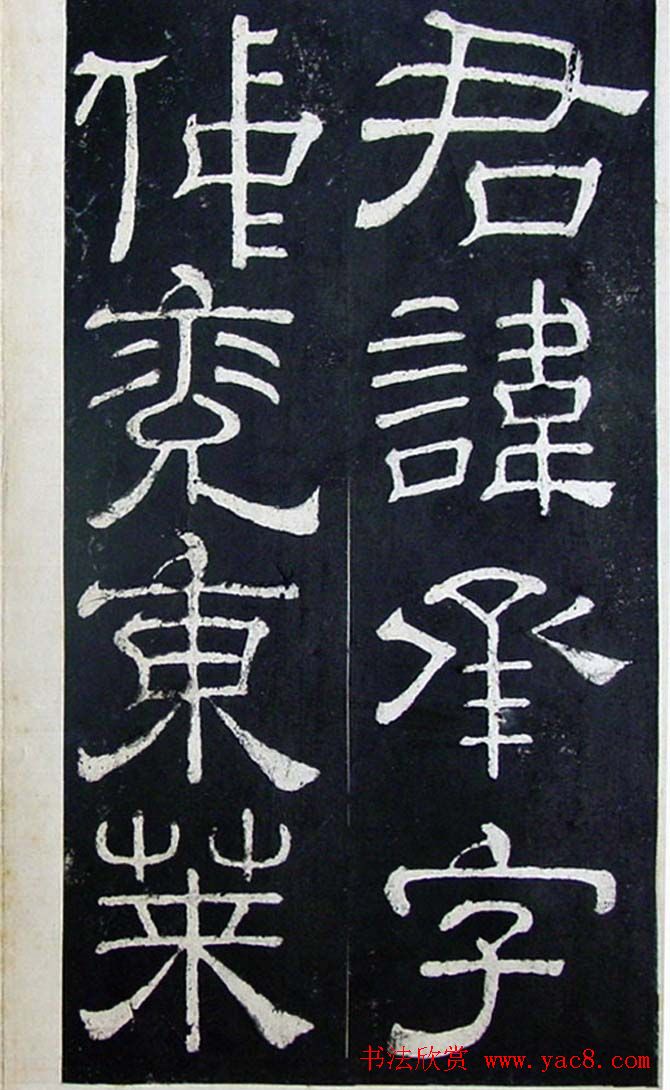 君諱承字
仲兗東萊
书法欣赏 www.yac8.com